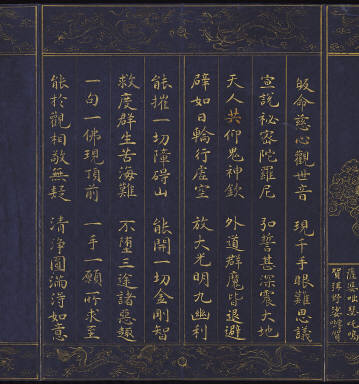 皈命慈心觀世音　現千手眼難思議
宣說祕密陀羅尼　弘誓甚深震大地
天人共仰鬼神欽　外道群魔皆退避
辟如日輪行虛空　放大光明九幽利
能摧一切障礙山　能開一切金剛智
救度群生苦海難　不墮三途諸惡趣
一句一佛現頂前　一手一願所求至
能於觀相敬無疑　清淨圓滿淂如意